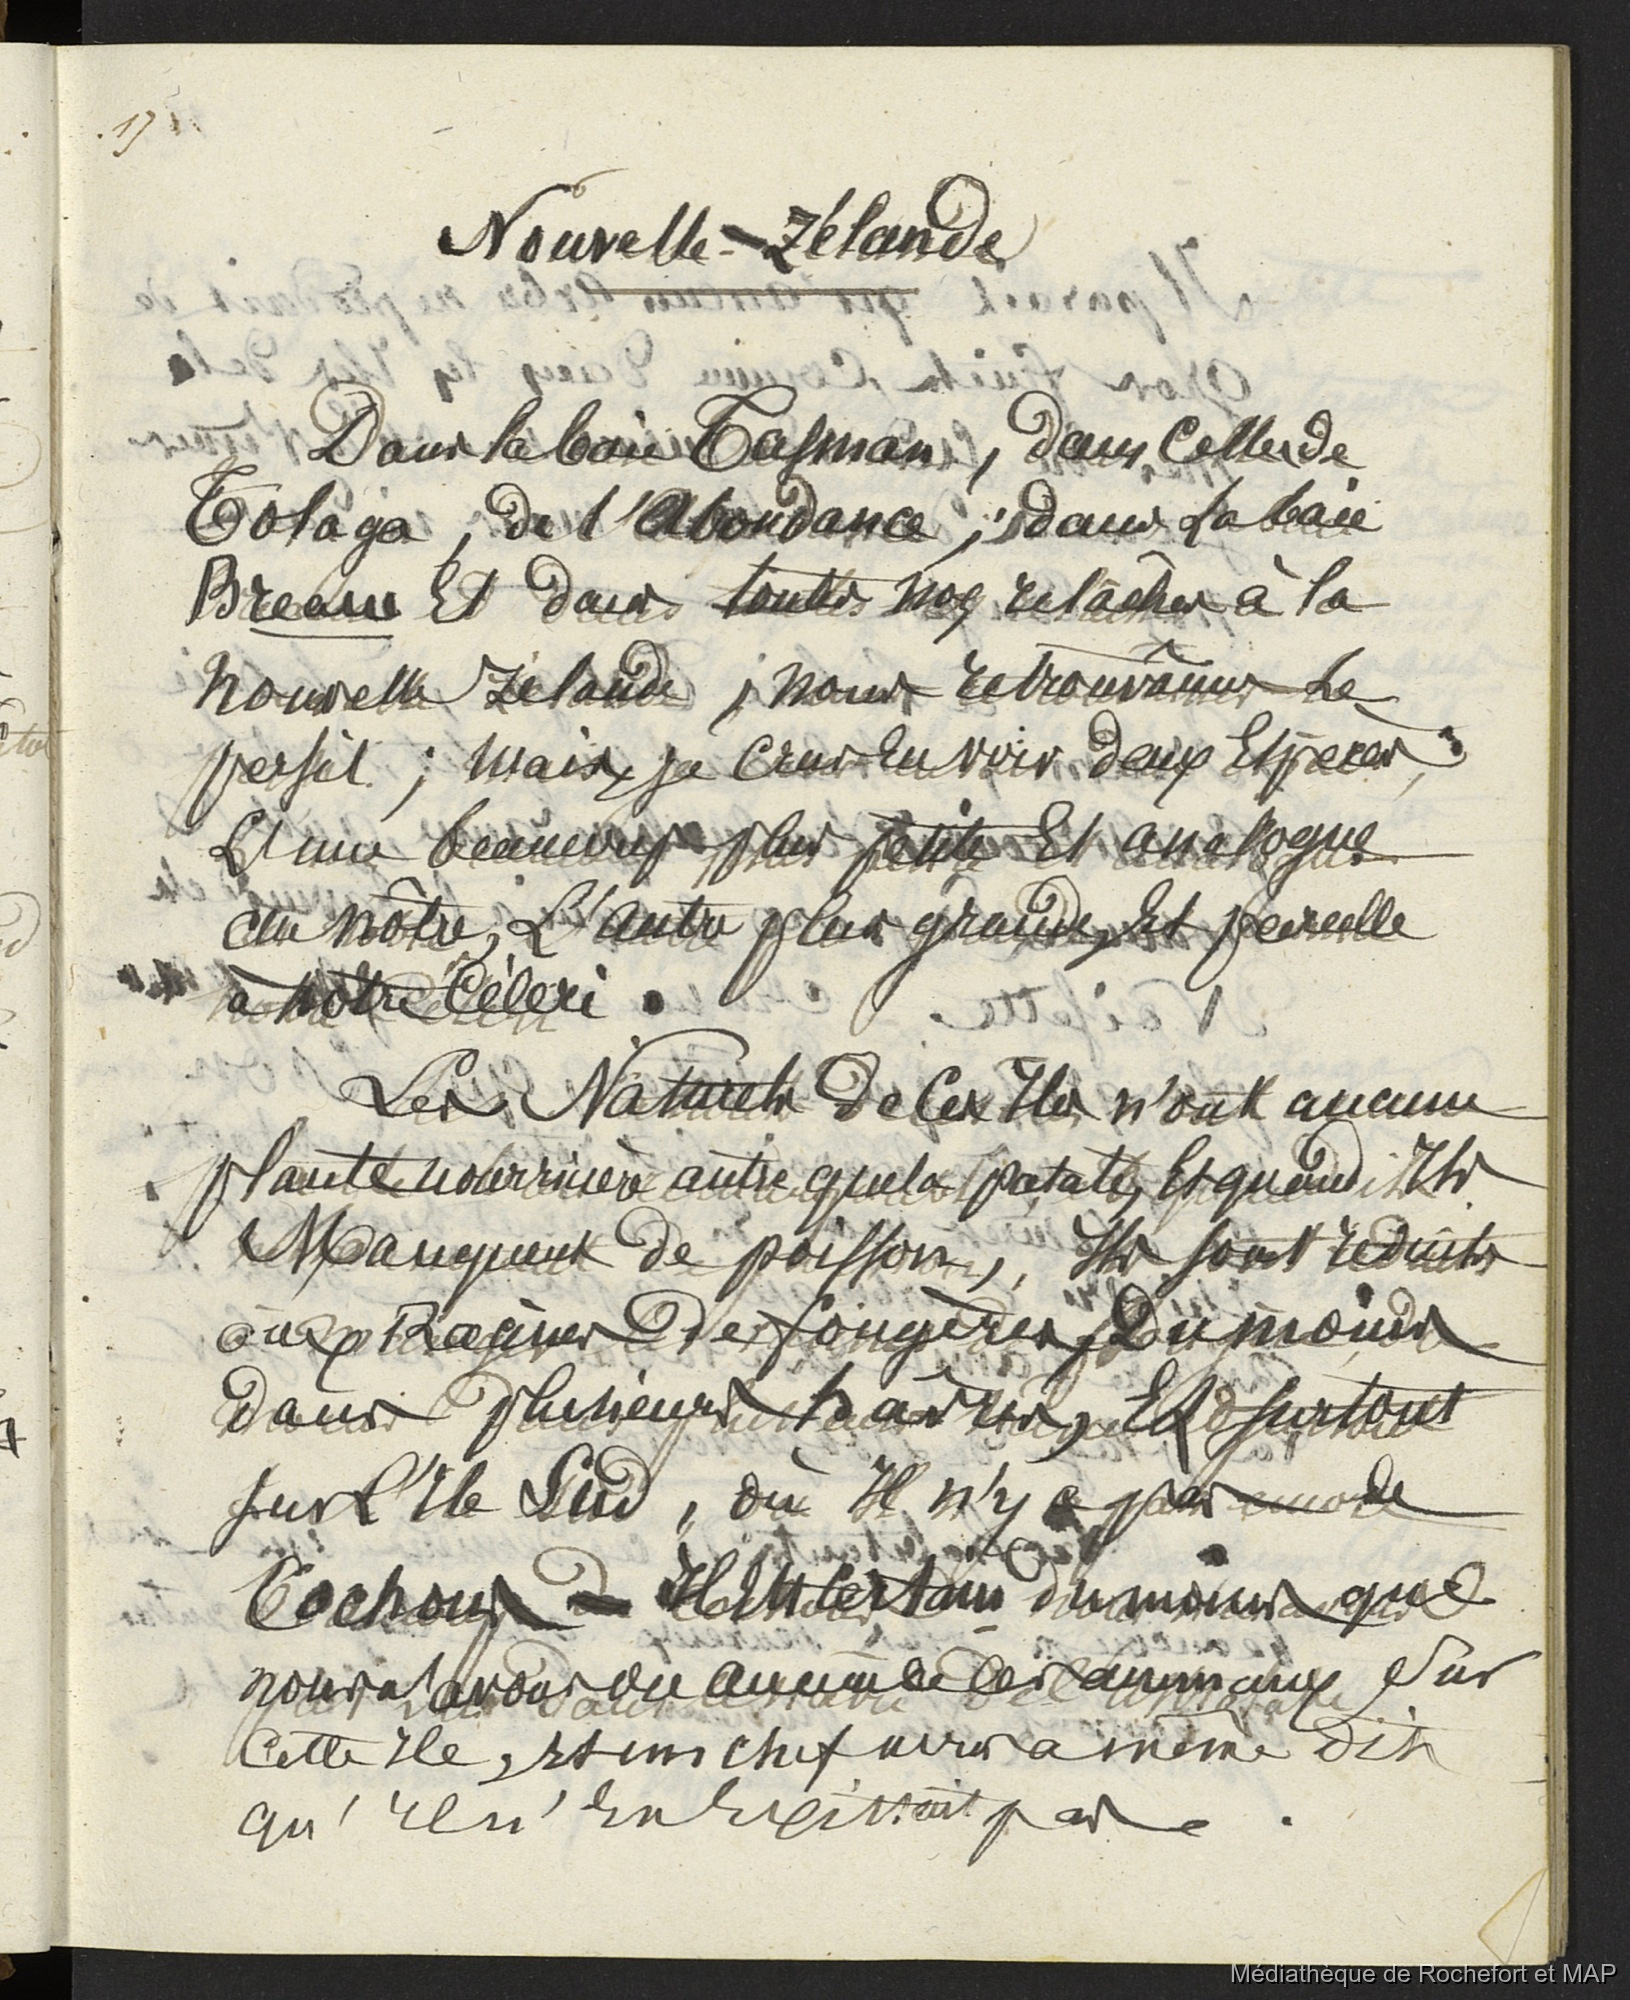 17
Nouvelle-Zélande
Dans la baie Tasman, dans celles de
Tolaga, de l'Abondance, dans la baie
Bream Et dans toutes nos relâches à la
Nouvelle Zélande, nous retrouvâmes le
persil; mais je crus En voir deux Espèces,
L'une beaucoup plus petite Et analogue
au nôtre, L'autre plus grande, Et pareille
à notre Céleri.
Les Naturels de Ces Iles n'ont aucune
plante nourricière autre que la patate, Et quand Ils
Manquent de poisson, Ils sont réduits
aux Racines de fougères, Du moins
dans plusieurs havres, Et surtout
sur L'Ile Sud, où Il n'y a pas de
Cochons - Il Est certain du moins que
nous n'avons vu aucun de Ces animaux Sur
Cette Ile, Et un chef nous a même dit
qu'Il n'En Existait pas.
Médiathèque de Rochefort et MAP